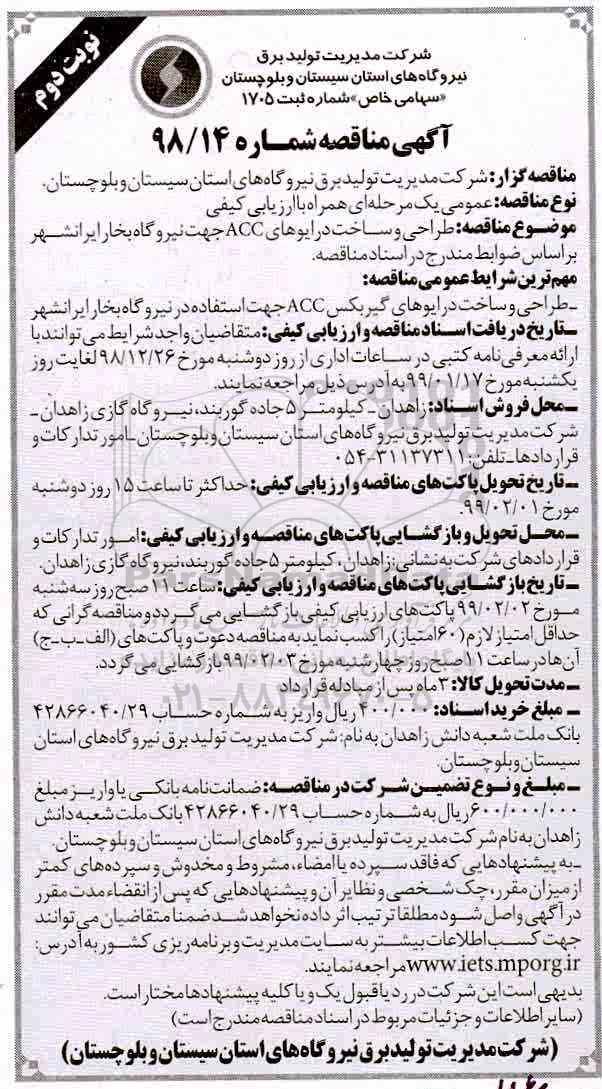 نوبت دوم
شرکت مدیریت تولید برق
نیروگاه‌های استان سیستان و بلوچستان
«سهامی خاص» شماره ثبت ۱۷۰۵
آگهی مناقصه شماره ۹۸/۱۴
مناقصه گزار: شرکت مدیریت تولید برق نیروگاه‌های استان سیستان و بلوچستان.
نوع مناقصه: عمومی یک مرحله‌ای همراه با ارزیابی کیفی
موضوع مناقصه: طراحی و ساخت درایوهای ACC جهت نیروگاه بخار ایرانشهر
براساس ضوابط مندرج در اسناد مناقصه.
مهم‌ترین شرایط عمومی مناقصه:
ـ طراحی و ساخت درایوهای گیربکس ACC جهت استفاده در نیروگاه بخار ایرانشهر
ـ تاریخ دریافت اسناد مناقصه و ارزیابی کیفی: متقاضیان واجد شرایط می‌توانند با
ارائه معرفی‌نامه کتبی در ساعات اداری از روز دوشنبه مورخ ۹۸/۱۲/۲۶ لغایت روز
یکشنبه مورخ ۹۹/۰۱/۱۷ به آدرس ذیل مراجعه نمایند.
ـ محل فروش اسناد: زاهدان ـ کیلومتر ۵ جاده گوربند، نیروگاه گازی زاهدان ـ
شرکت مدیریت تولید برق نیروگاه‌های استان سیستان و بلوچستان ـ امور تدارکات و
قراردادها ـ تلفن: ۳۱۱۳۷۳۱۱-۰۵۴
ـ تاریخ تحویل پاکت‌های مناقصه و ارزیابی کیفی: حداکثر تا ساعت ۱۵ روز دوشنبه
مورخ ۹۹/۰۲/۰۱.
ـ محل تحویل و بازگشایی پاکت‌های مناقصه و ارزیابی کیفی: امور تدارکات و
قراردادهای شرکت به نشانی: زاهدان، کیلومتر ۵ جاده گوربند، نیروگاه گازی زاهدان.
ـ تاریخ بازگشایی پاکت‌های مناقصه و ارزیابی کیفی: ساعت ۱۱ صبح روز سه‌شنبه
مورخ ۹۹/۰۲/۰۲ پاکت‌های ارزیابی کیفی بازگشایی می‌گردد و مناقصه‌گرانی که
حداقل امتیاز لازم (۶۰ امتیاز) را کسب نماید به مناقصه دعوت و پاکت‌های (الف-ب-ج)
آن‌ها در ساعت ۱۱ صبح روز چهارشنبه مورخ ۹۹/۰۲/۰۳ بازگشایی می گردد.
ـ مدت تحویل کالا: ۳ ماه پس از مبادله قرارداد
ـ مبلغ خرید اسناد: ۴۰۰/۰۰۰ ریال واریز به شماره حساب ۴۲۸۶۶۰۴۰/۲۹
بانک ملت شعبه دانش زاهدان به نام: شرکت مدیریت تولید برق نیروگاه‌های استان
سیستان و بلوچستان.
ـ مبلغ و نوع تضمین شرکت در مناقصه: ضمانت‌نامه بانکی یا واریز مبلغ
۶۰۰/۰۰۰/۰۰۰ ریال به شماره حساب ۴۲۸۶۶۰۴۰/۲۹ بانک ملت شعبه دانش
زاهدان به نام شرکت مدیریت تولید برق نیروگاه‌های استان سیستان و بلوچستان.
ـ به پیشنهادهایی که فاقد سپرده یا امضاء، مشروط و مخدوش و سپرده‌های کمتر
از میزان مقرر، چک شخصی و نظایر آن و پیشنهادهایی که پس از انقضاء مدت مقرر
در آگهی واصل شود مطلقاً ترتیب اثر داده نخواهد شد ضمناً متقاضیان می‌توانند
جهت کسب اطلاعات بیشتر به سایت مدیریت و برنامه‌ریزی کشور به آدرس:
www.iets.mporg.ir مراجعه نمایند.
بدیهی است این شرکت در رد یا قبول یک و یا کلیه پیشنهادها مختار است.
(سایر اطلاعات و جزئیات مربوط در اسناد مناقصه مندرج است)
(شرکت مدیریت تولید برق نیروگاه‌های استان سیستان و بلوچستان)